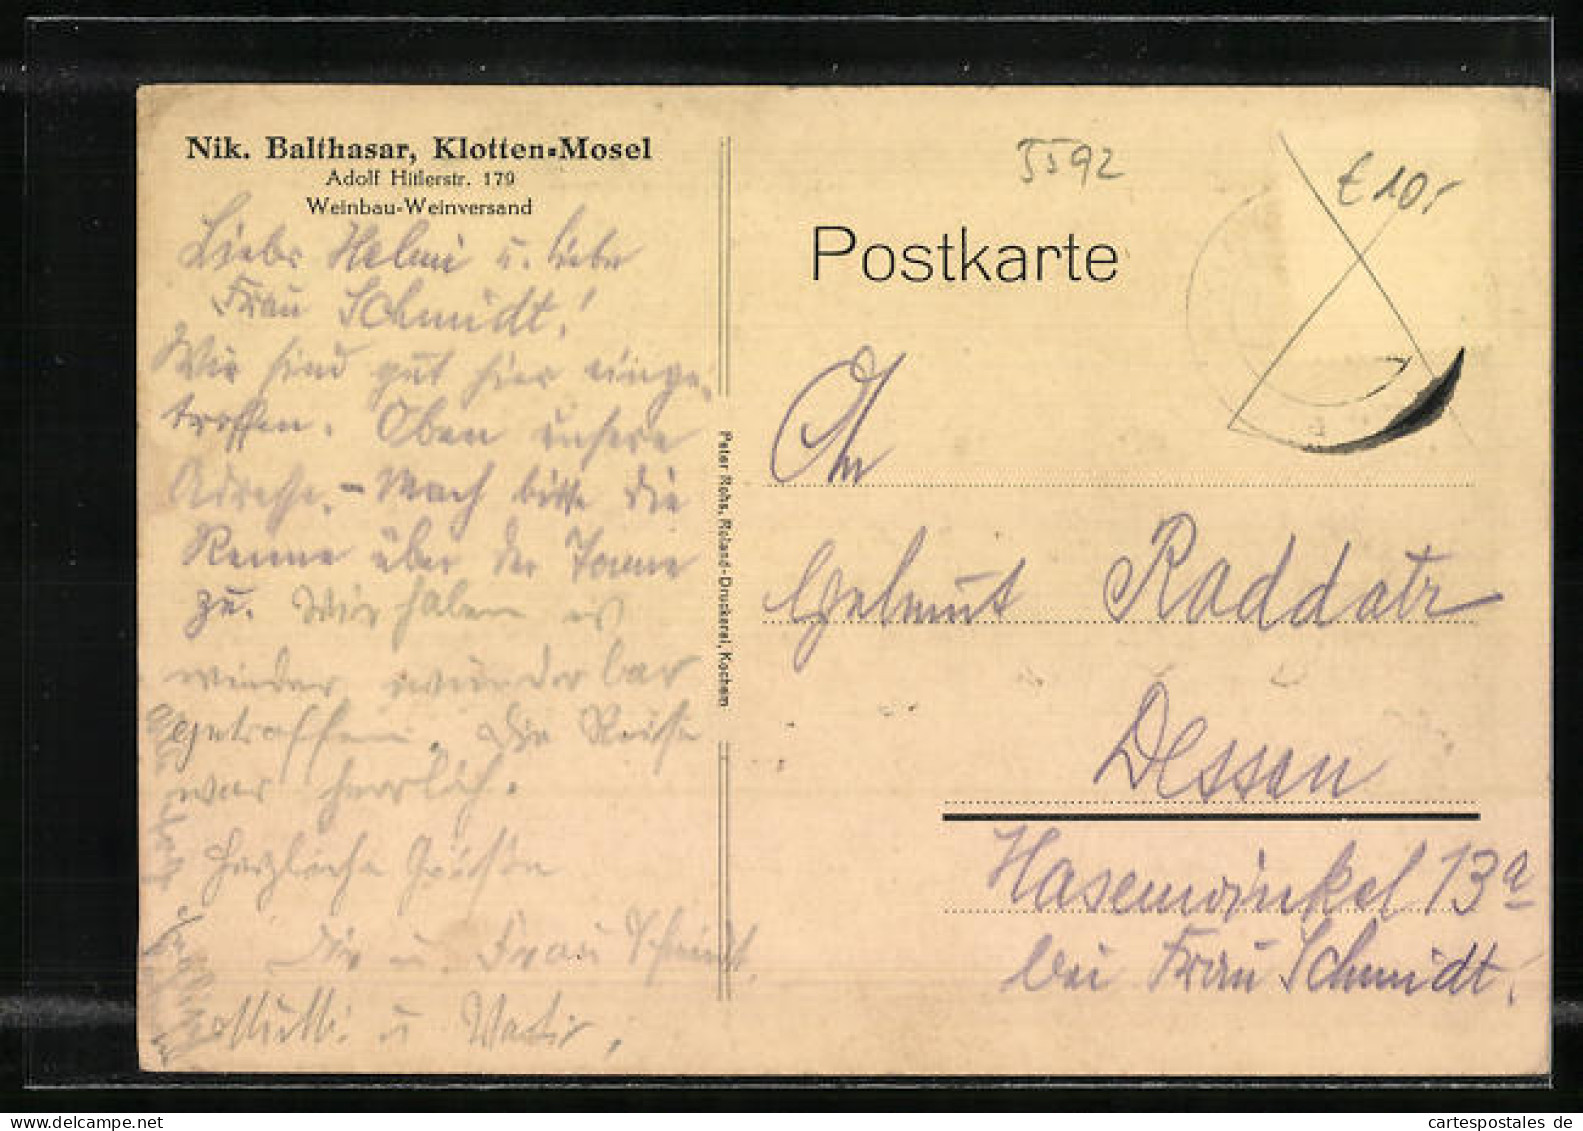 Nik. Balthasar, Klotten-Mosel
Adolf Hitlerstr. 179
Weinbau-Weinversand
Lieber Helmi u. liebe
Frau Schmidt!
Wir sind gut hier einge-
troffen. Oben unsere
Adresse. - Mach bitte die
Renne über der Tonne
zu. Wir haben es
wieder wunderbar
getroffen. Die Reise
war herrlich.
Herzliche Grüße
Dir u. Frau Schmidt.
Mutti u Vati.
Peter Rohs, Roland-Druckerei, Kochem
5592
€ 10,-
Postkarte
An
Helmut Raddatz
Dessau
Hasenwinkel 13a
bei Frau Schmidt.
cartespostales de
www.delcampe.net